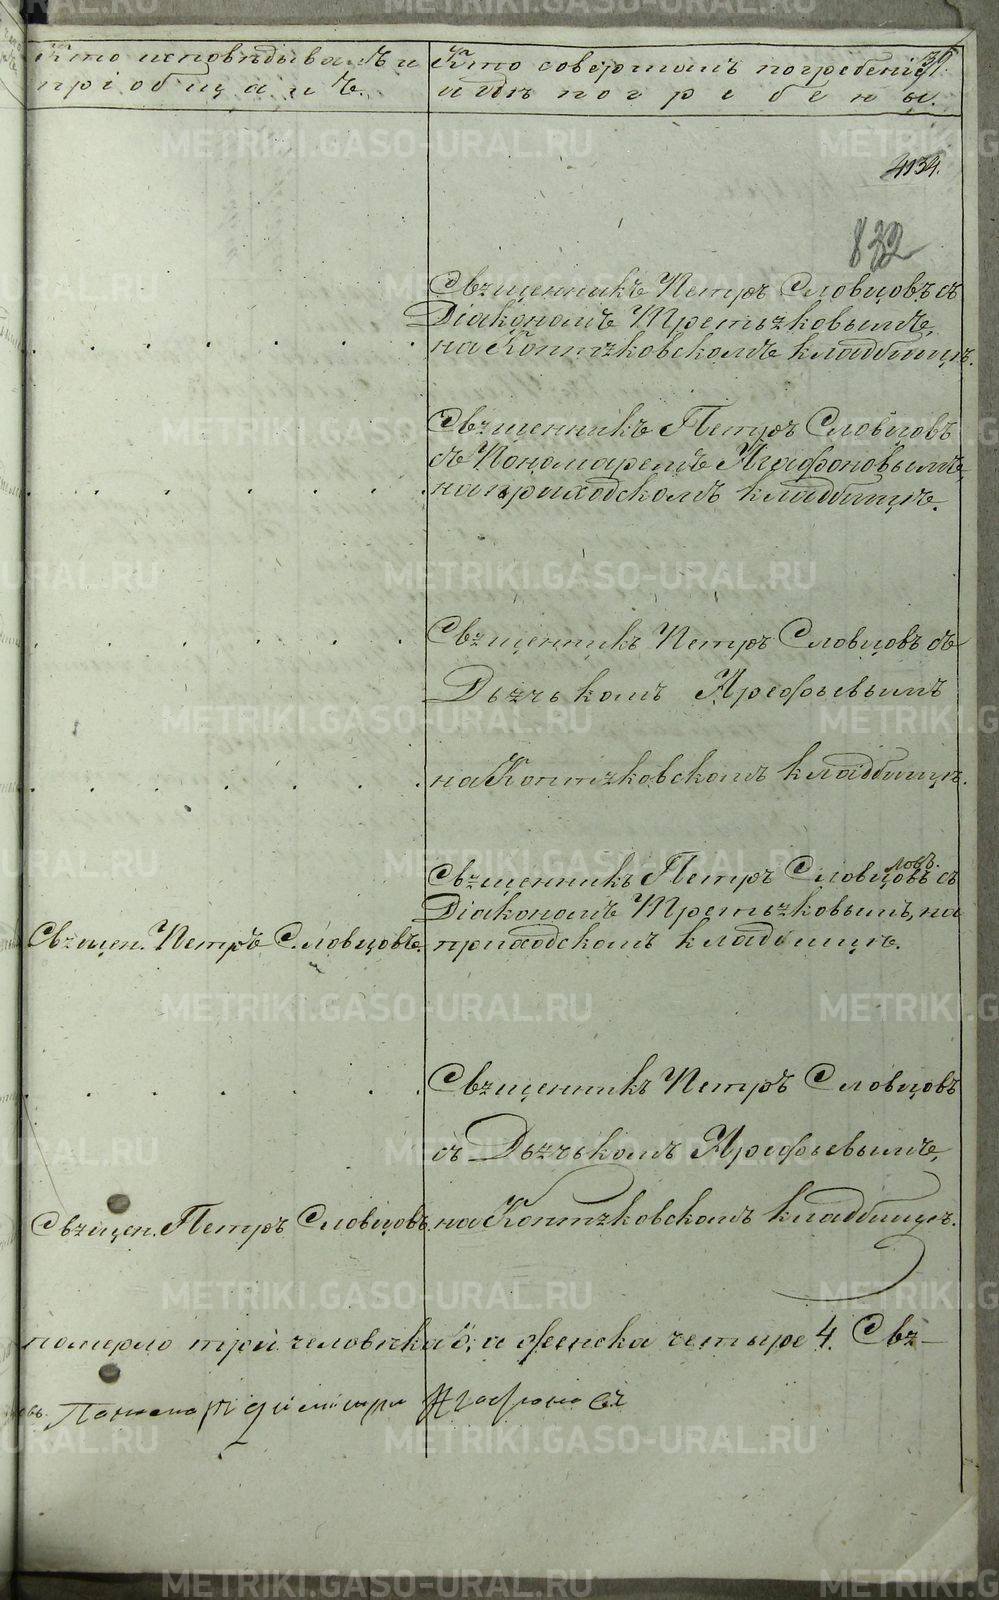 Кто исповѣдывалъ и
пріобщалъ.
Кто совершалъ погребеніе
и гдѣ погребены.
39.
4134.
832
Священникъ Петръ Словцовъ съ
Діакономъ Третьяковымъ,
на Коптяковскомъ кладбищѣ.
Священникъ Петръ Словцовъ
съ Пономаремъ Агафоновымъ,
на приходскомъ кладбищѣ.
Священникъ Петръ Словцовъ съ
Дьячькомъ Арефьевымъ
на Коптяковскомъ кладбищѣ.
Священникъ Петръ Словцовъ съ
Діакономъ Третьяковымъ, на
Священ. Петръ Словцовъ. приходскомъ кладбищѣ.
Священникъ Петръ Словцовъ
съ Дьячькомъ Арефьевымъ,
Священ. Петръ Словцовъ. на Коптяковскомъ кладбищѣ.
померло три человѣка и женска четыре 4. Свя-
Пономарь Димитри Агафоновъ
METRIKI.GASO-URAL.RU